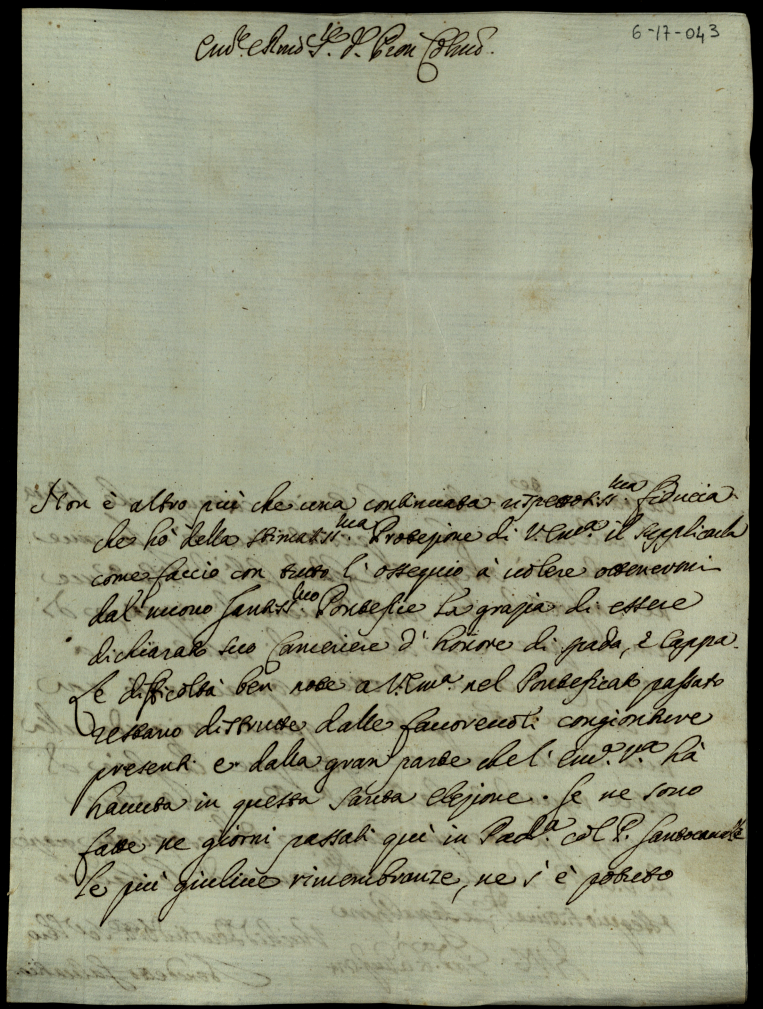 6-17-043
Em.e e Rmo S.re P.ron Colmo.
Non è altro più che una continuata rispettosiss.ma fiducia
che hò della stimatiss.ma Protezione di V. Em.a il supplicarla
come faccio con tutto l'ossequio à volere ottenermi
dal nuovo Santiss.mo Pontefice la grazia di essere
dichiarato suo Cameriere d'honore di spada, e Cappa.
Le difficoltà ben note a V. Em.a nel Ponteficato passato
restano distrutte dalle favorevoli congionture
presenti e dalla gran parte che l'Em.a V.a hà
havuta in questa santa Elezione. Se ne sono
fatte ne giorni passati qui in Pad.a col P. Santocanale
le più giulive rimembranze, ne s'è potuto